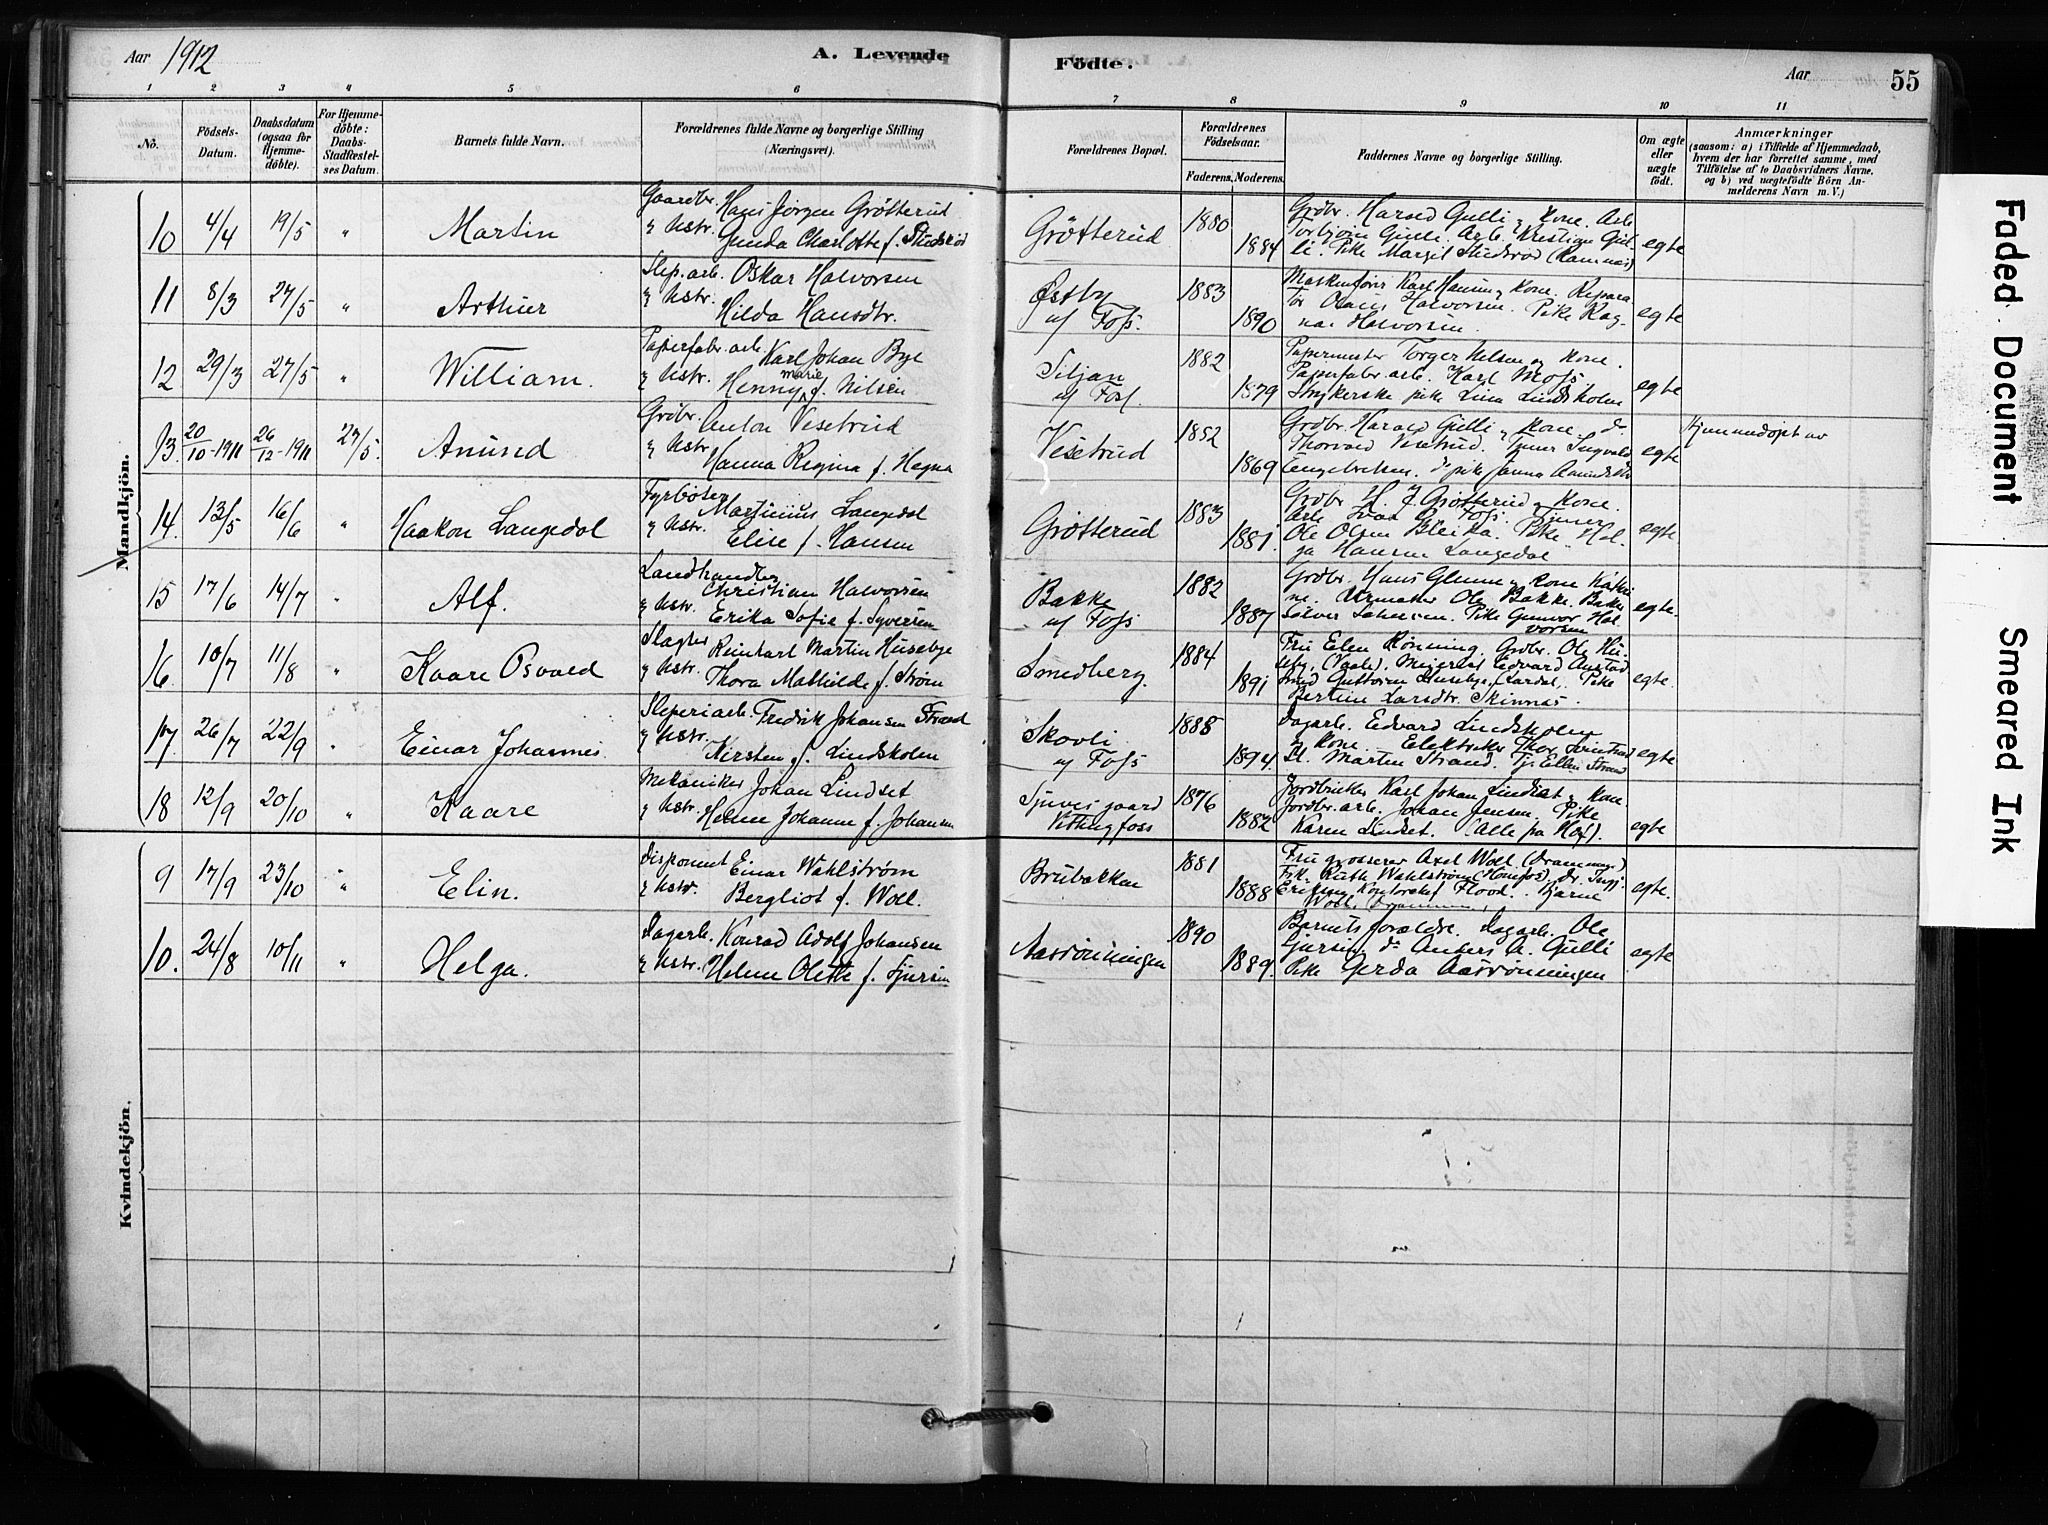 Aar 1912
A. Levende Födte.
Aar
55
1 2 3 4 5 6 7 8 9 10 11
No.
Födsels-
Datum.
Daabsdatum
(ogsaa for
Hjemme-
döbte).
For Hjemme-
döbte:
Daabs-
Stadfæstel-
ses Datum.
Barnets fulde Navn.
Forældrenes fulde Navne og borgerlige Stilling
(Næringsvei).
Forældrenes Bopæl.
Forældrenes
Födselsaar.
Faderens. Moderens.
Faddernes Navne og borgerlige Stilling.
Om ægte
eller
uægte
födt.
Anmærkninger
(saasom: a) i Tilfælde af Hjemmedaab,
hvem der har forrettet samme, med
Tilföielse af to Daabsvidners Navne,
og b) ved uægtefödte Börn An-
melderens Navn m. V.)
Mandkjön.
10 4/4 19/5 " Martin
Gaardbr. Hans Jörgen Grötterud
& Hstr. Gunda Charlotte f. Studsröd
Grötterud 1880 1884
Grdbr. Harald Gulli & Kone. Arb
Torbjörn Gulli. Arb. Kristian Gul-
li. Pike Margit Studsrød (Ramnæs)
egte
11 8/3 27/5 " Arthur
Slip.arb. Oskar Halvorsen
& Hstr. Hilda Hansdtr.
Østby
u/ Foss. 1883 1890
Maskinfører Karl Hansen & Kone. Repara-
tør Olaus Halvorsen. Pike Rag-
na Halvorsen.
egte
12 29/3 27/5 " William.
Papirfabr.arb. Karl Johan Bye
& Hstr. Henny Marie f. Nilsen
Siljan
u/ Foss. 1882 1879
Papermester Torger Nilsen og Kone.
Papirfabr.arb. Karl Moss
Strykerske pike Lina Lindsholm
egte
13. 20/10-1911 26/12-1911 27/5. Anund
Grdbr. Anton Vesetrud
& Hstr. Hanna Regina f. Hegna
Vesetrud 1852 1869
Grdbr. Harald Gulli & Kone. do
Thorvald Vesetrud. Tjener Ingvald
Engebretsen. do pike Janna
egte
Hjemmedöpt av
14. 13/5 16/6 " Haakon Langedal
Fyrböter Martinius Langedal
& Hstr. Elise f. Hansen
Grötterud 1883 1881.
Grdbr. H. J. Grötterud & Kone.
Arb. Foss. Tjener
Ole Olsen Bleika. Pike Hel-
ga Hansen Langedal
egte
15 17/6 14/7 " Alf.
Landhandler Christian Halvorsen
& Hstr. Erika Sofie f. Syversen
Bakke
u/ Foss 1882 1887
Grdbr. Hans Glenne & Kone Katri-
ne. Urmaker Ole Bakke. Baker
Sølver Pike Gunvor Hal-
vorsen
egte.
16. 10/7 11/8 " Kaare Osvald
Slagter Reinhart Martin Huseby
& Hstr. Thora Mathilde f. Strøm
Smedberg 1884 1891
Fru Elen Rönning. Grdbr. Ole Hu-
seby, (Vaale). Meierist Edvard
Smed Guttorm Huseby, Lardal. Pike
Bertine Larsdtr. Skinnæs.
egte.
17. 26/7 22/9 " Einar Johannes.
Sliperiarb. Fredrik Johansen Strand
& Hstr. Kirsten f. Lindsholm
Skovli
u/ Foss 1888 1894.
Dagarb. Edvard Lindsholm
& Kone. Elektriker Thor
Martin Strand. Ellen Strand
egte
18 12/9 20/10 " Kaare
Mekaniker Johan Lindset
& Hstr. Helene Johanne f. Johansen
Sjuvisgaard
Vittingfoss 1876 1882
Jordbruker Karl Johan Lindset & Kone.
Jordbr.arb. Johan Jensen. Pike
Karen Lindset. (Alle på Hof).
egte
Kvindekjön.
9 17/9 23/10 " Elin.
Disponent Einar Wahlström
& Hstr. Bergliot f. Woll.
Brubakken 1881 1888
Fru grosserer Axel Woll (Drammen)
Frk. Ruth Wahlström (Hönefos). Dr. Trygg.
Eriksen, Kontorchef Flood. Bjarne
Woll, (Drammen).
egte.
10. 24/8 10/11 " Helga.
Dagarb. Konrad Adolf Johansen
& Hstr. Helene Olette f. Sjursen
Aasrönningen 1890 1889.
Barnets forældre. Dagarb. Ole
Sjursen, do Anders A. Gulli
Pike Gerda Aasrönningen
egte
Faded Document
Smeared Ink